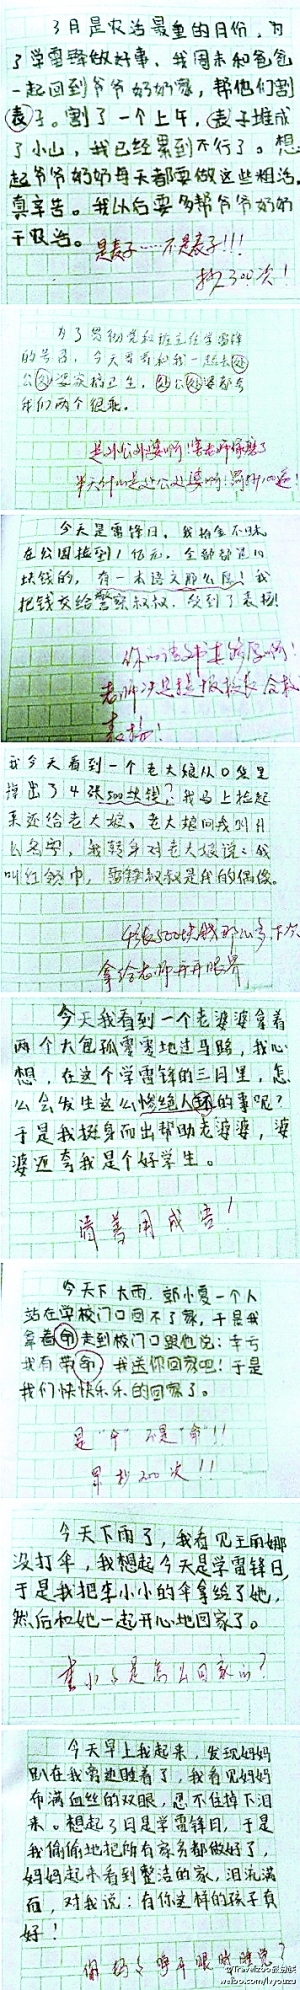 3月是农活最重的日份，为
了学雷锋做好事，我周末和爸爸
一起回到爷爷奶奶家，帮他们割
表子。割了一个上午，表子堆成
了小山，我已经累到不行了。想
起爷爷奶奶每天都要做这些粗活，
真辛苦。我以后要多帮爷爷奶奶
干农活。
是麦子……不是表子!!!
抄300次!
的号召，今天哥哥和我一起去处
公处婆家搞卫生，处公处婆都夸
我们两个很乖。
是外公外婆啊!害老师琢磨了
半天什么是处公处婆啊!罚抄100遍!
今天是雷锋日，我拾金不昧
在公园捡到1亿元，全部都是10
块钱的，有一本语文那么厚!我
把钱交给警察叔叔，受到了表扬!
你的语文书真够厚啊!
老师决定提报校长合校
表扬!
我今天看到一个老大娘从口袋里
掉出了4张500块钱?我马上捡起
来还给老大娘。老大娘问我叫什
么名字，我转身对老大娘说：我
叫红领巾，雷锋叔叔是我的偶像。
4张500块钱那么多，下次
拿给老师开开眼界
今天我看到一个老婆婆拿着
两个大包孤零零地过马路，我心
想，在这个学雷锋的三月里，怎
么会发生这么惨绝人环的事呢?
于是我挺身而出帮助老婆婆，婆
婆还夸我是个好学生。
请善用成语!
今天下大雨，郭小夏一个人
站在学校门口回不了家，于是我
拿着命走到校门口跟他说：幸亏
我有带命，我送你回家吧!于是
我们快快乐乐的回家了。
是“伞”不是“命”!!
罚抄200次!!
今天下雨了，我看见王雨娜
没打伞，我想起今天是学雷锋日，
于是我把李小小的伞拿给了她，
然后和她一起开心地回家了。
李小小是怎么回家的?
今天早上我起来，发现妈妈
趴在我旁边睡着了，我看见妈妈
布满血丝的双眼，忍不住掉下泪
来。想起3日是学雷锋日，于是
我偷偷地把所有家务都做好了，
妈妈起来看到整洁的家，泪流满
面，对我说：有你这样的孩子真
好!
你妈妈睁开眼睛睡觉?
weibo.com/lvyouzu